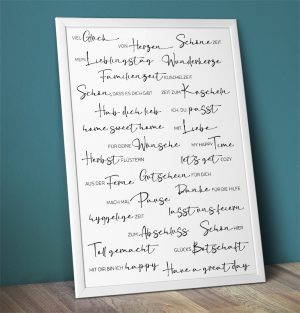 VIEL Glück
VON Herzen Schöne ZEIT
MEIN Lieblingstag Wunderkerze
Familienzeit KUSCHELZEIT
Schön, DASS ES DICH GIBT ZEIT ZUM Kuscheln
Hab dich lieb ICH, DU passt
home sweet home MIT Liebe
FÜR DEINE Wünsche MY HAPPY Time
Herbst FLÜSTERN let's get COZY
AUS DER Ferne Gutschein FÜR DICH
MACH MAL Pause Danke FÜR DIE HILFE
hyggelige ZEIT lasst uns feiern
ZUM Abschluss Schön HIER
Toll gemacht GLÜCKS Botschaft
MIT DIR BIN ICH happy Have a great day